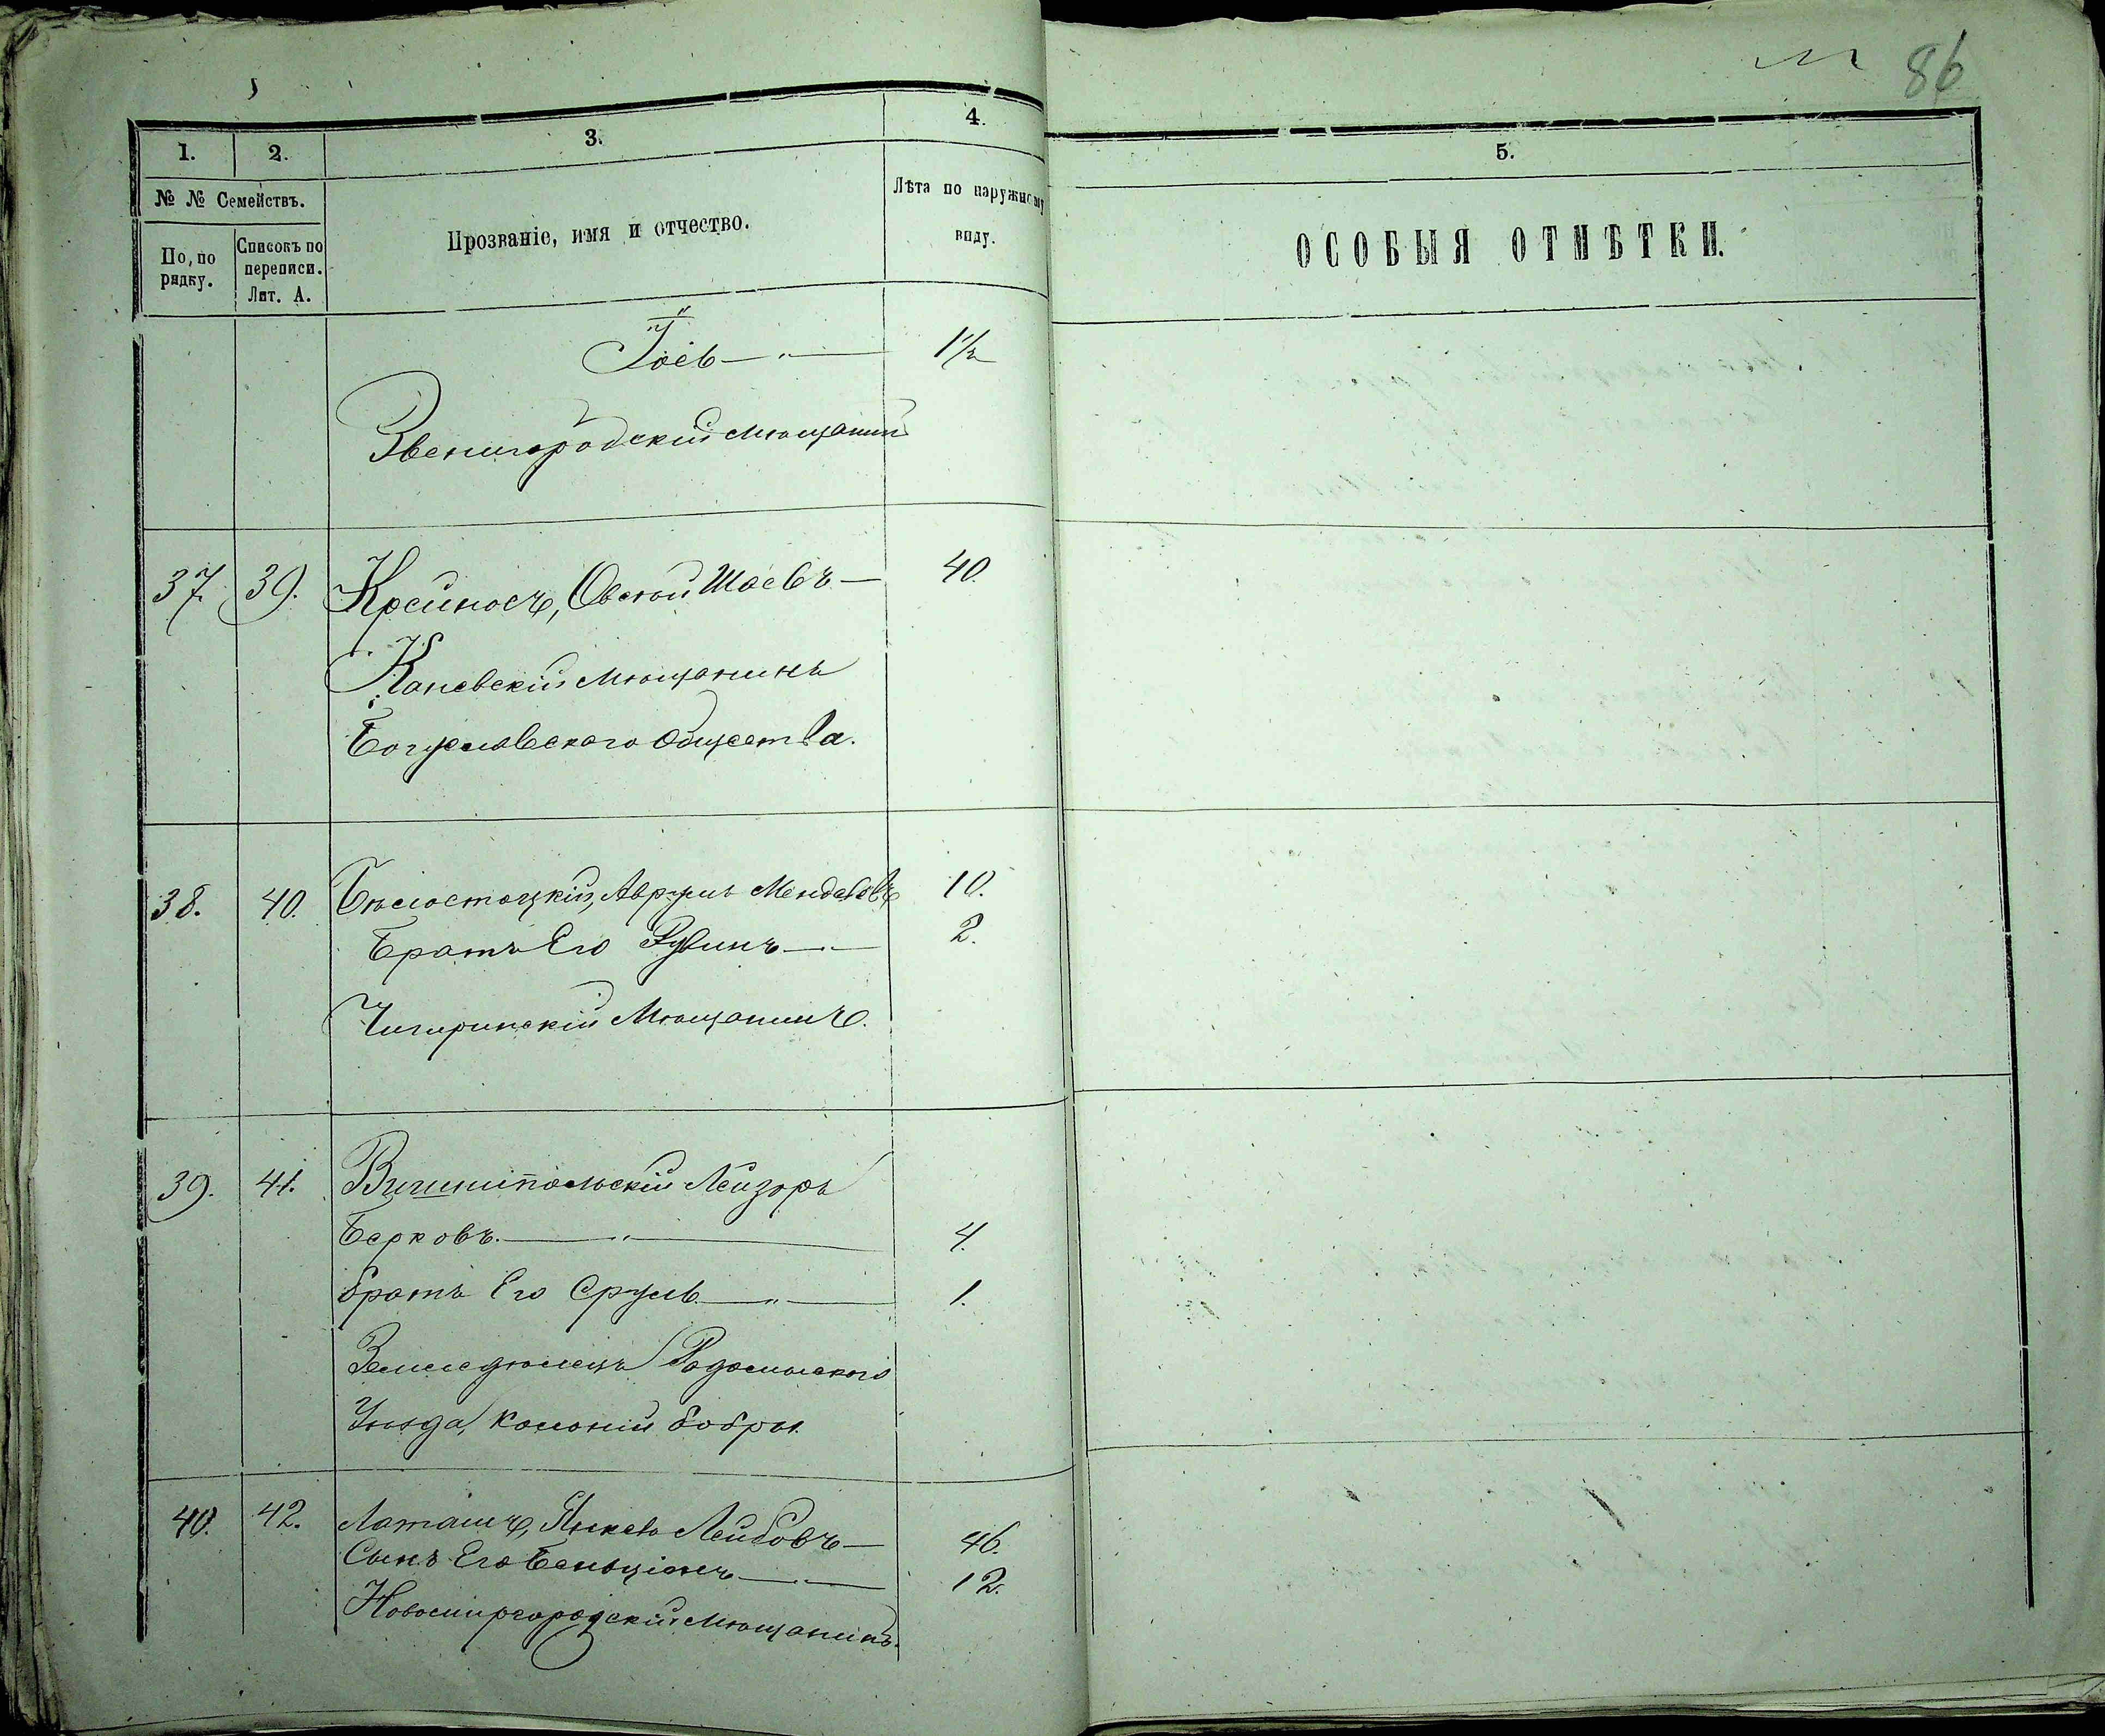 86
1. 2. 3. 4. 5.
№ № Семействъ.
По, по рядку.
Списокъ по переписи. Лит. А.
Прозваніе, имя и отчество.
Лѣта по наружному виду.
ОСОБЫЯ ОТМѢТКИ.
1½
Звенигородскій мѣщанинъ
37 39. Крейносъ, Овсѣй Шаевъ — 40.
Каневскій мѣщанинъ
Богуславскаго общества.
38. 40. Бѣлостоцкій, Аврумъ Менделевъ 10.
Братъ Его Рувинъ — 2.
Чигиринскій Мѣщанинъ.
39. 41. Лейзоръ
Берковъ. — 4.
братъ Его Сруль — 1.
Земледѣлецъ Радомысльского
Уѣзда, колоніи Бобры.
40. 42. Латашъ, Янкель Лейбовъ — 46.
Сынъ Его Беньціонъ — 12.
Новомиргородскій Мѣщанинъ.